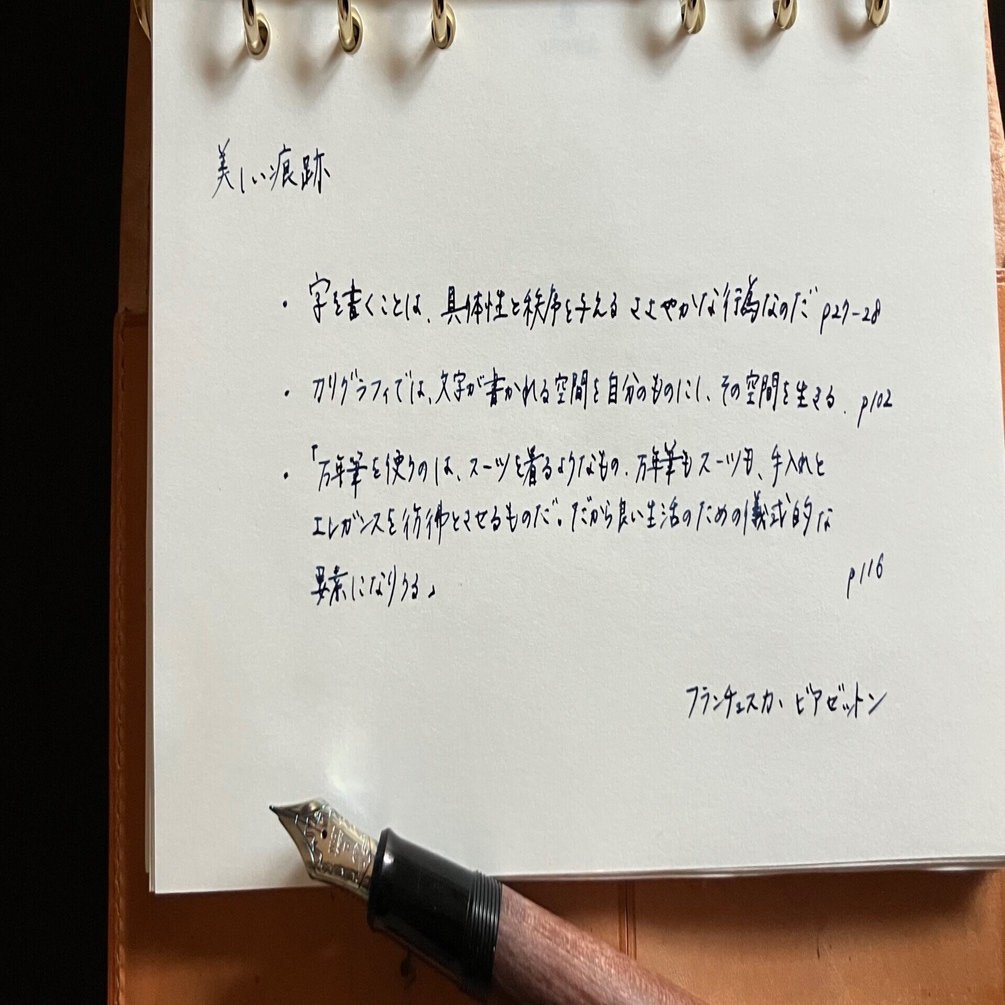 美しい痕跡
・字を書くことは、具体性と秩序を与えるささやかな行為なのだ p27-28
・カリグラフィでは、文字が書かれる空間を自分のものにし、その空間を生きる. p102
・「万年筆を使うのは、スーツを着るようなもの.万年筆もスーツも、手入れと
エレガンスを彷彿とさせるものだ。だから良い生活のための儀式的な
要素になりうる」 p116
フランチェスカ・ビアゼットン